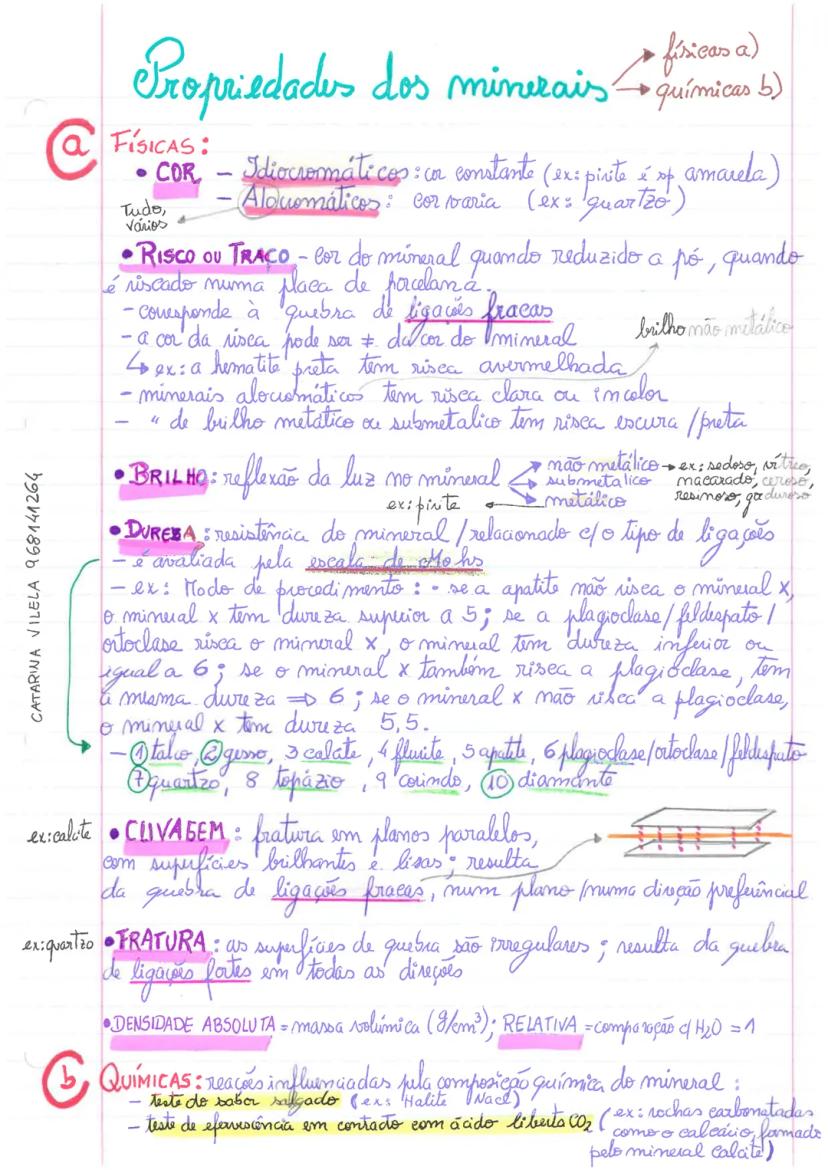 Propriedades dos minerais → físicas a)
→ químicas b)
a FÍSICAS:
• COR - Idiocromáticos: cor constante (ex: pirite é sp amarela)
- Alocromáticos: cor varia (ex: quartzo)
Tudo,
vários
• RISCO OU TRAÇO - Cor do mineral quando reduzido a pó, quando
é riscado numa placa de porcelana.
- corresponde à quebra de ligações fracas
- a cor da risca pode ser ≠ da cor do mineral
brilho não metálico
↳ ex: a hematite preta tem risca avermelhada
- minerais alocromáticos tem risca clara ou incolor
- " de brilho metático ou submetalico tem risca escura / preta
• BRILHO: reflexão da luz no mineral
não metálico → ex: sedoso, vítreo,
submetalico nacarado, ceroso,
metálico resinoso, gorduroso
ex: pirite
• DUREZA: resistência do mineral / relacionado c/o tipo de ligações
- é avaliada pela escala de Mohs
- ex: Modo de procedimento: - se a apatite não risca o mineral x,
o mineral x tem dureza superior a 5; se a plagioclase/feldespato/
ortoclase risca o mineral x, o mineral tem dureza inferior ou
igual a 6; se o mineral x também risca a plagioclase, tem
a mesma dureza ⇒ 6; se o mineral x não risca a plagioclase,
o mineral x tem dureza 5,5.
- 1 talco, 2 gesso, 3 calcite, 4 fluite, 5 apatite, 6 plagioclase/ortoclase/feldspato
7 quartzo, 8 topázio, 9 corindo, 10 diamante
ex: calcite • CLIVAGEM: fratura em planos paralelos,
com superfícies brilhantes e lisas; resulta
da quebra de ligações fracas, num plano/numa direção preferêncial
ex: quartzo • FRATURA: as superfícies de quebra são irregulares; resulta da quebra
de ligações fortes em todas as direções
• DENSIDADE ABSOLUTA = massa volúmica (g/cm³); RELATIVA = comparação c/ H2O = 1
b QUÍMICAS: reações influenciadas pela composição química do mineral:
- teste do sabor salgado (ex: Halite NaCl)
- teste de efervescência em contacto com ácido liberta CO2 (ex: rochas carbonatadas
como o calcário, formado
pelo mineral calcite)
CATARINA VILELA 968141264